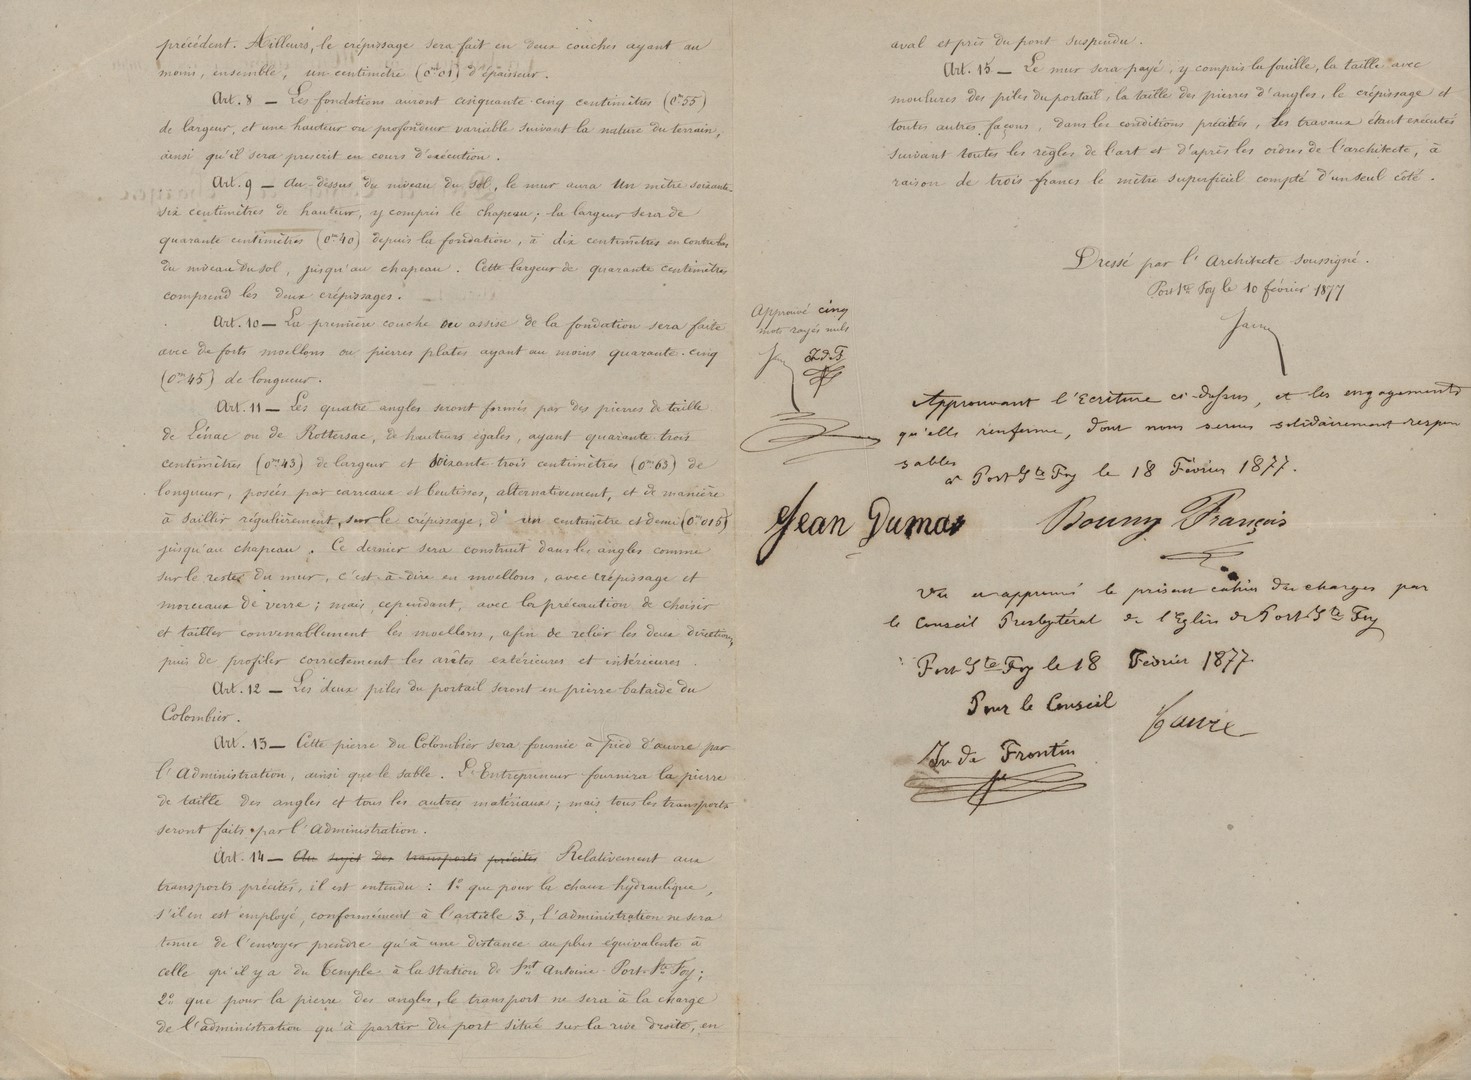 précédent. Ailleurs, le crépissage sera fait en deux couches ayant au
moins, ensemble, un centimètre (0m01) d'épaisseur.
Art. 8 — Les fondations auront cinquante-cinq centimètres (0m55)
de largeur, et une hauteur ou profondeur variable suivant la nature du terrain,
ainsi qu'il sera prescrit en cours d'exécution.
Art. 9 — Au-dessus du niveau du sol, le mur aura un mètre soixante-
six centimètres de hauteur, y compris le chapeau; la largeur sera de
quarante centimètres (0m40) depuis la fondation, à dix centimètres en contrebas
du niveau du sol, jusqu'au chapeau. Cette largeur de quarante centimètres
comprend les deux crépissages.
Art. 10 — La première couche ou assise de la fondation sera faite
avec de forts moellons ou pierres plates ayant au moins quarante-cinq
(0m45) de longueur.
Art. 11 — Les quatre angles seront formés par des pierres de taille
de Lénac ou de Rottersac, de hauteurs égales, ayant quarante trois
centimètres (0m43) de largeur et soixante-trois centimètres (0m63) de
longueur, posées par carreaux et boutisses, alternativement, et de manière
à saillir régulièrement, sur le crépissage, d'un centimètre et demi (0m015)
jusqu'au chapeau. Ce dernier sera construit dans les angles comme
sur le reste du mur, c'est-à-dire en moellons, avec crépissage et
morceaux de verre; mais cependant, avec la précaution de choisir
et tailler convenablement les moellons, afin de relier les deux directions,
puis de profiler correctement les arêtes extérieures et intérieures.
Art. 12 — Les deux piles du portail seront en pierre batarde du
Colombier.
Art. 13 — Cette pierre du Colombier sera fournie à pied d'œuvre par
l'Administration, ainsi que le sable. L'Entrepreneur fournira la pierre
de taille des angles et tous les autres matériaux; mais tous les transports
seront faits par l'Administration.
Art. 14 — Au sujet des transports précités Relativement aux
transports précités, il est entendu: 1° que pour la chaux hydraulique,
s'il en est employé, conformément à l'article 3, l'administration ne sera
tenue de l'envoyer prendre qu'à une distance au plus équivalente à
celle qu'il y a du Temple à la station de Snt Antoine-Port-Ste Foy;
2° que pour la pierre des angles, le transport ne sera à la charge
de l'administration qu'à partir du port situé sur la rive droite, en
aval et près du pont suspendu.
Art. 15 — Le mur sera payé, y compris la fouille, la taille avec
moulures des piles du portail, la taille des pierres d'angles, le crépissage et
toutes autres façons, dans les conditions précitées, les travaux étant exécutés
suivant toutes les règles de l'art et d'après les ordres de l'architecte, à
raison de trois francs le mètre superficiel compté d'un seul côté.
Dressé par l'Architecte soussigné.
Port Ste Foy le 10 février 1877
Approuvé cinq
mots rayés nuls
J d F
Approuvant l'Ecriture ci-dessus, et les engagements
qu'elle renferme, dont nous serons solidairement respon
sables
a Port Ste Foy le 18 Février 1877.
Jean Dumas
Bouny François
Vu et approuvé le présent cahier des charges par
le Conseil Presbytéral de l'Eglise de Port Ste Foy
Port Ste Foy le 18 Février 1877
Pour le Conseil
de Frontin